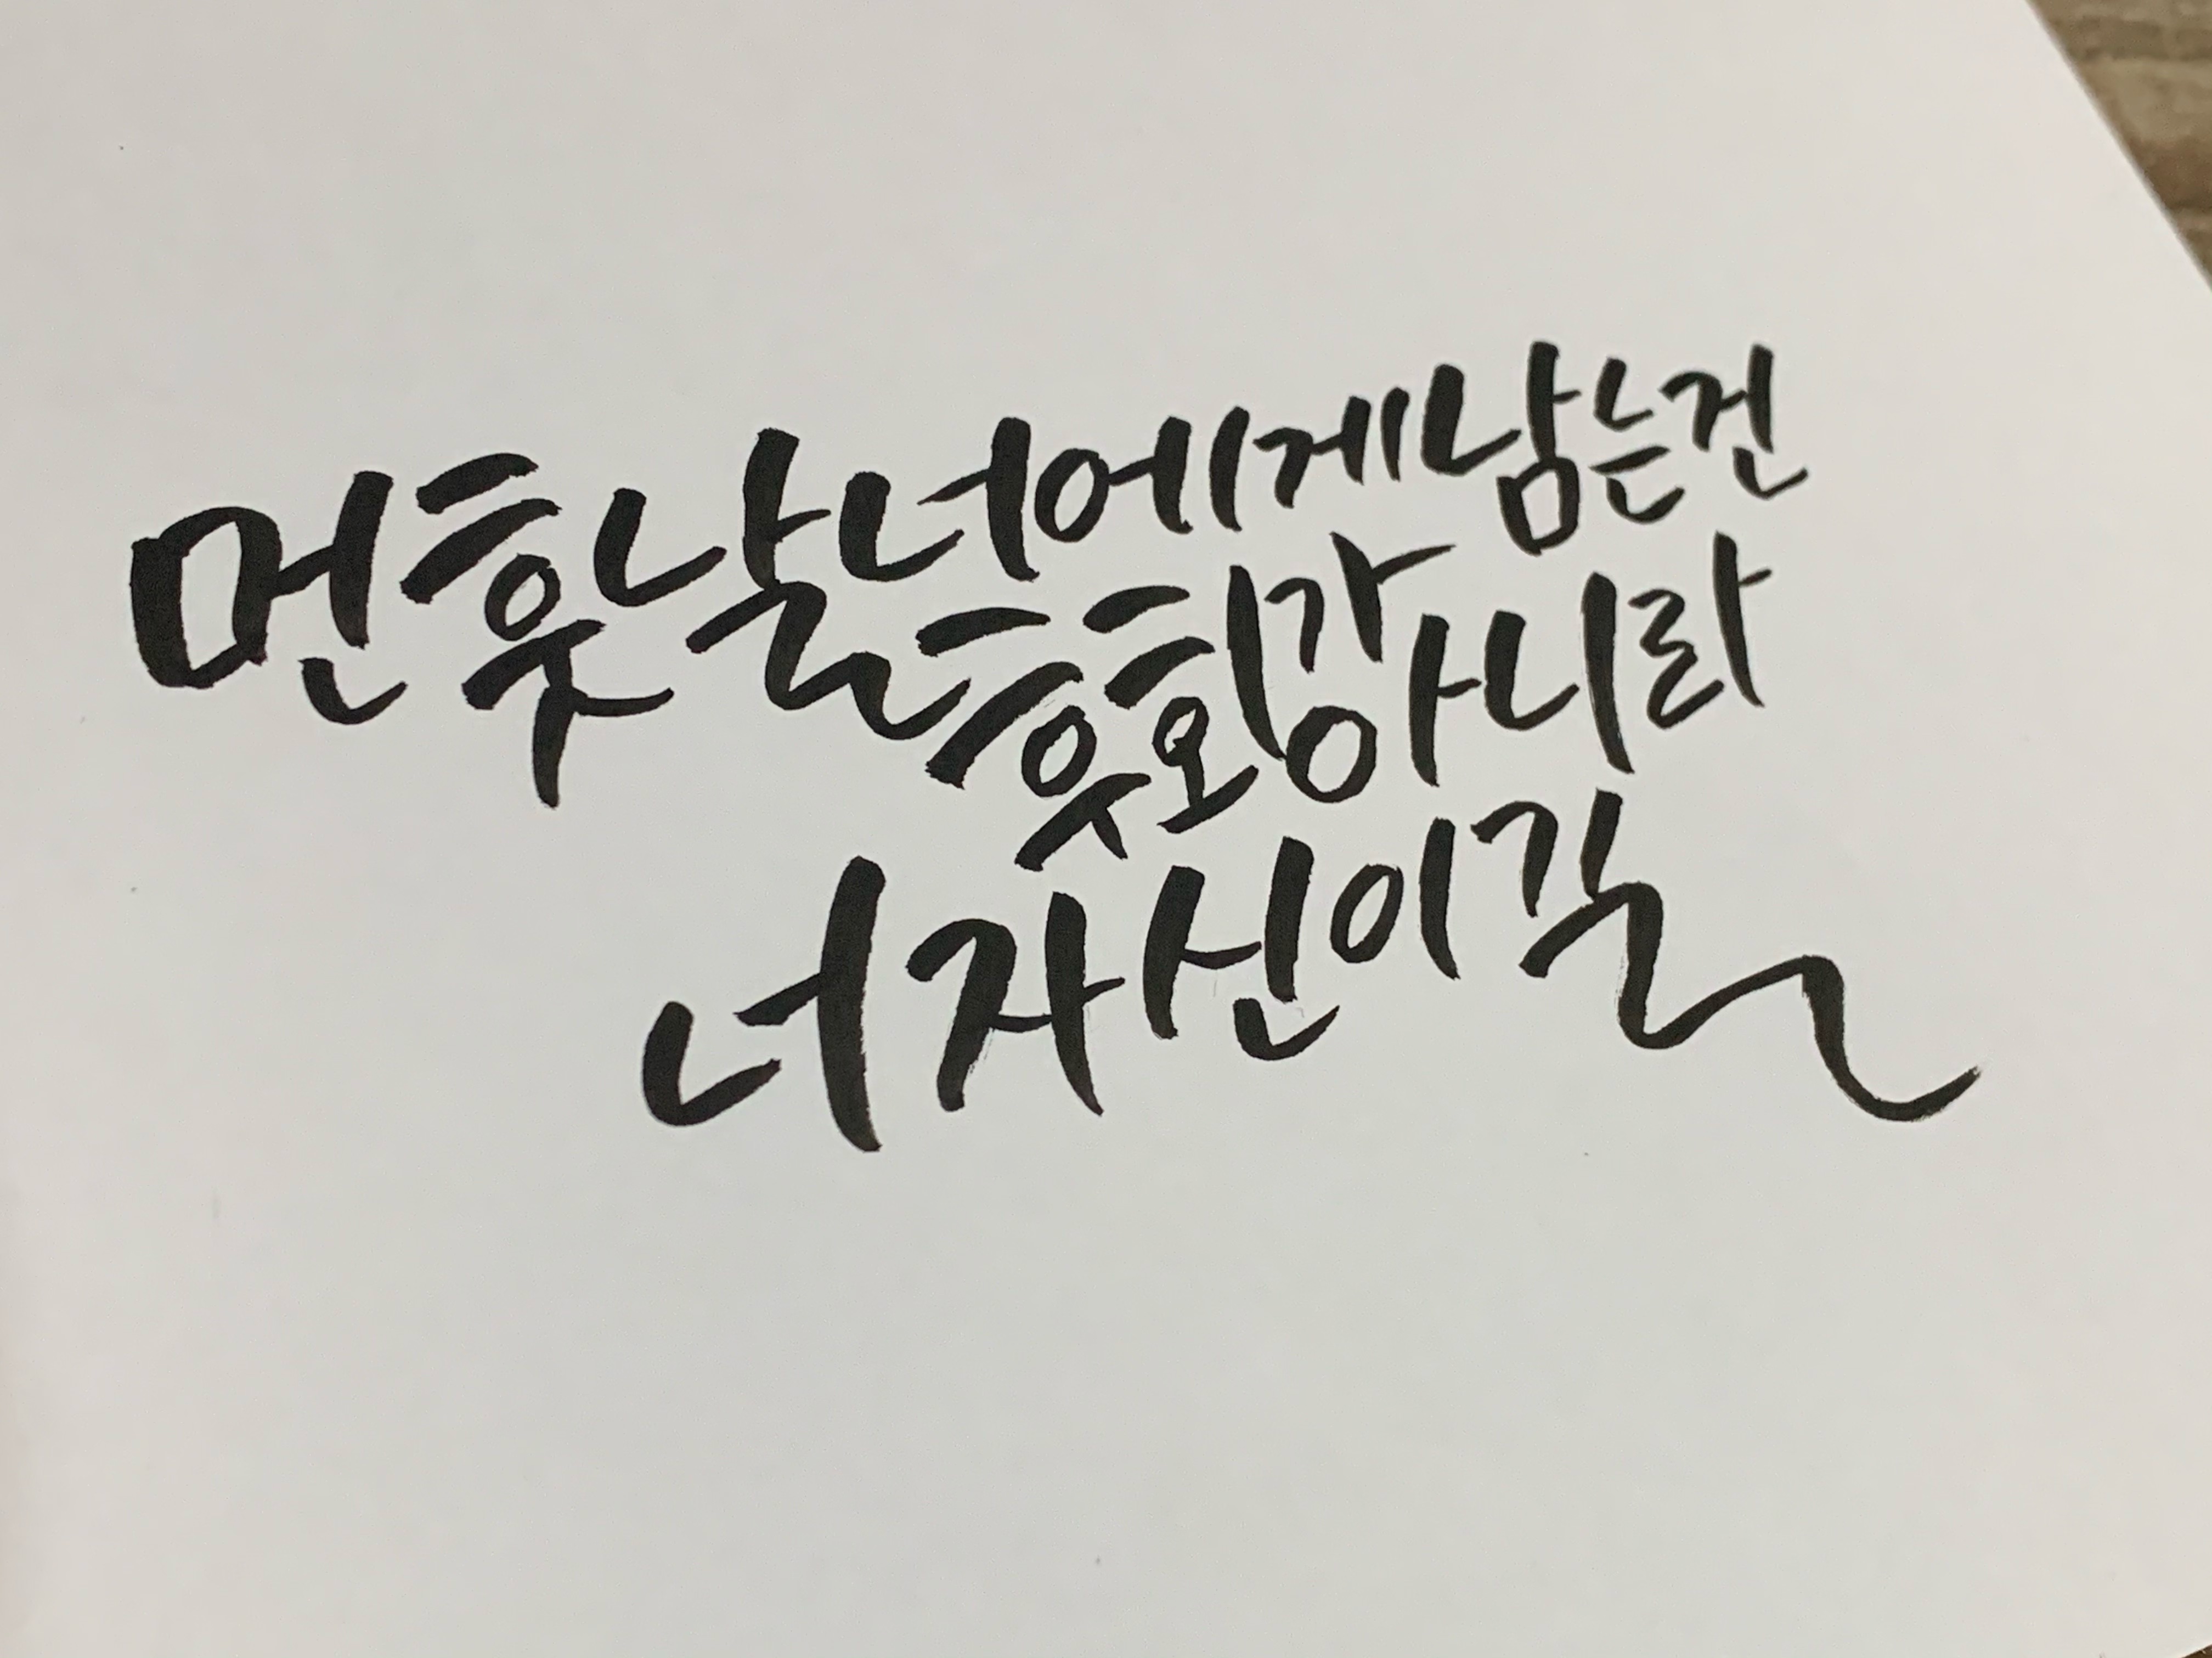 먼 훗날 너에게 남는건
후회가 아니라
너 자신이길